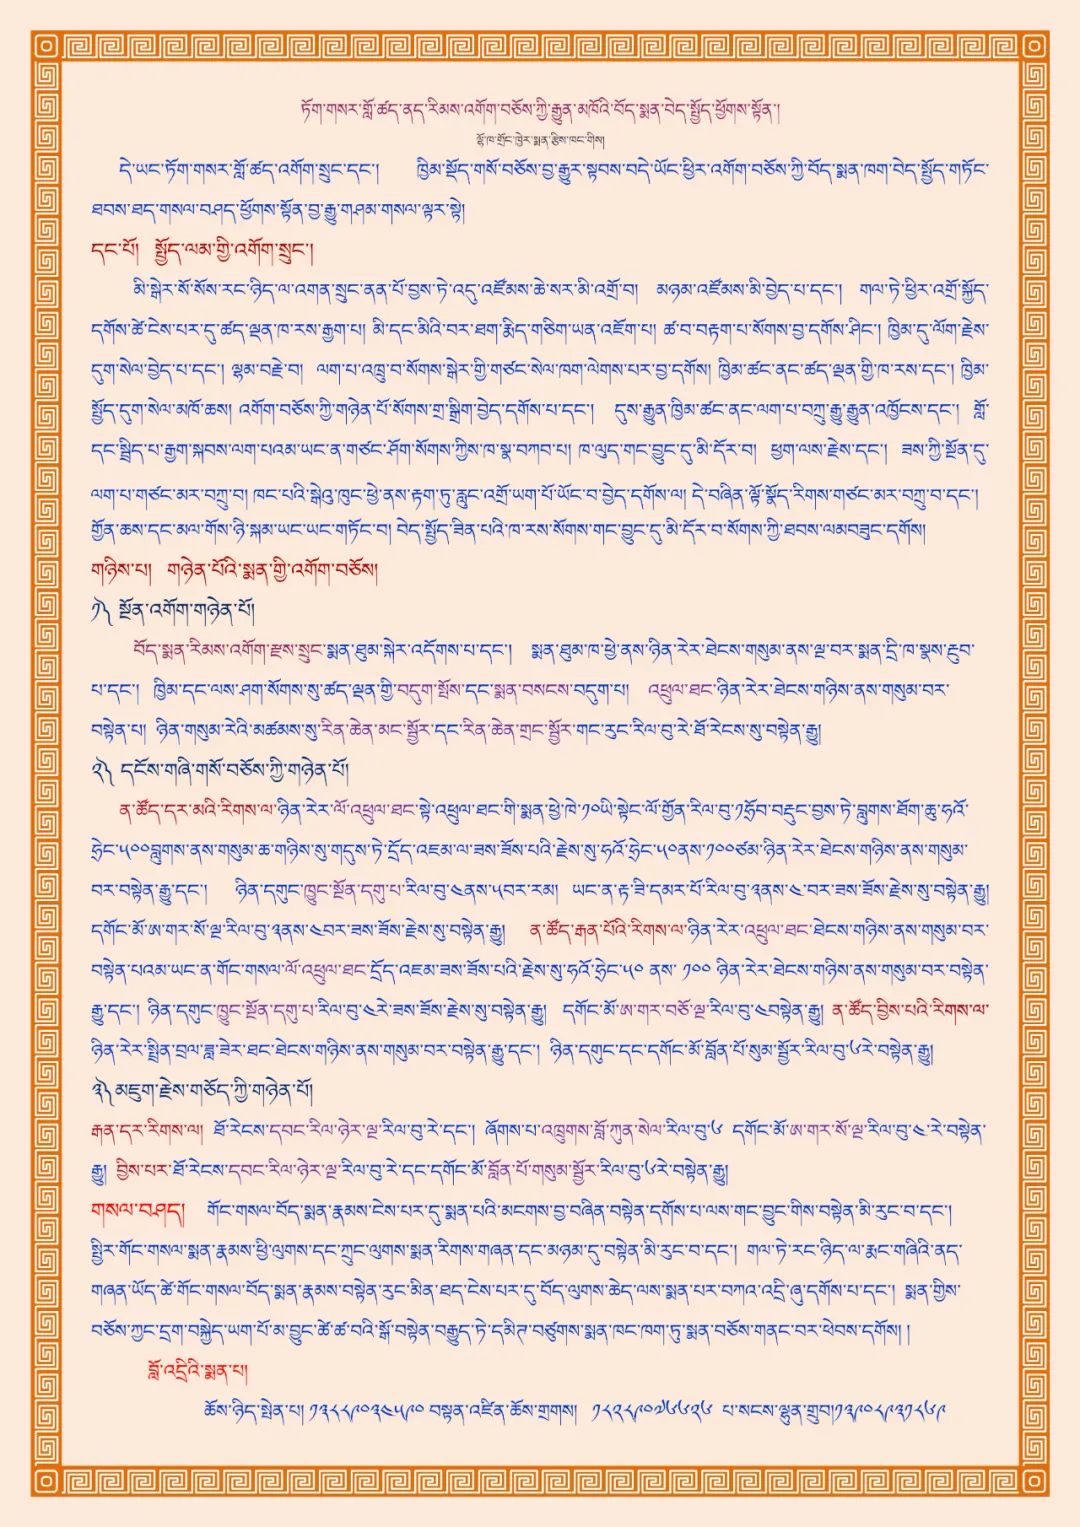 ཏོག་གསར་གློ་ཚད་ནད་རིམས་འགོག་བཅོས་ཀྱི་རྒྱུན་མཁོའི་བོད་སྨན་བེད་སྤྱོད་ཕྱོགས་སྟོན།
ལྷོ་ཁ་གྲོང་ཁྱེར་སྨན་རྩིས་ཁང་གིས།
དེ་ཡང་ཏོག་གསར་གློ་ཚད་འགོག་སྲུང་དང་། ཁྱིམ་སྡོད་གསོ་བཅོས་བྱ་རྒྱུར་སྟབས་བདེ་ཡོང་ཕྱིར་འགོག་བཅོས་ཀྱི་བོད་སྨན་ཁག་བེད་སྤྱོད་གཏོང་
ཐབས་ཐད་གསལ་བཤད་ཕྱོགས་སྟོན་བྱ་རྒྱུ་གཤམ་གསལ་ལྟར་སྟེ།
དང་པོ། སྤྱོད་ལམ་གྱི་འགོག་སྲུང་།
མི་སྒེར་སོ་སོས་རང་ཉིད་ལ་འགན་སྲུང་ནན་པོ་བྱས་ཏེ་འདུ་འཛོམས་ཆེ་སར་མི་འགྲོ་བ། མཉམ་འཛོམས་མི་བྱེད་པ་དང་། གལ་ཏེ་ཕྱིར་འགྲོ་སྐྱོད་
དགོས་ཚེ་ངེས་པར་དུ་ཚད་ལྡན་ཁ་རས་རྒྱག་པ། མི་དང་མིའི་བར་ཐག་རྨིད་གཅིག་ཡན་འཇོག་པ། ཚ་བ་བརྟག་པ་སོགས་བྱ་དགོས་ཤིང་། ཁྱིམ་དུ་ལོག་རྗེས་
དུག་སེལ་བྱེད་པ་དང་། ལྷམ་བརྗེ་བ། ལག་པ་འཁྲུ་བ་སོགས་སྒེར་གྱི་གཙང་སེལ་ཁག་ལེགས་པར་བྱ་དགོས། ཁྱིམ་ཚང་ནང་ཚད་ལྡན་གྱི་ཁ་རས་དང་། ཁྱིམ་
སྤྱོད་དུག་སེལ་མཁོ་ཆས། འགོག་བཅོས་ཀྱི་གཉེན་པོ་སོགས་གྲ་སྒྲིག་བྱེད་དགོས་པ་དང་། དུས་རྒྱུན་ཁྱིམ་ཚང་ནང་ལག་པ་བཀྲུ་རྒྱུ་རྒྱུན་འཁྱོངས་དང་། གློ་
དང་སྦྲིད་པ་རྒྱག་སྐབས་ལག་པའམ་ཡང་ན་གཙང་ཤོག་སོགས་ཀྱིས་ཁ་སྣ་བཀབ་པ། ཁ་ལུད་གང་བྱུང་དུ་མི་དོར་བ། ཕྱག་ལས་རྗེས་དང་། ཟས་ཀྱི་སྔོན་དུ་
ལག་པ་གཙང་མར་བཀྲུ་བ། ཁང་པའི་སྒེའུ་ཁུང་ཕྱེ་ནས་རྟག་ཏུ་རླུང་འགྲོ་ཡག་པོ་ཡོང་བ་བྱེད་དགོས་ལ། དེ་བཞིན་ལྟོ་སྣོད་རིགས་གཙང་མར་བཀྲུ་བ་དང་།
གྱོན་ཆས་དང་མལ་གོས་ཉི་སྐམ་ཡང་ཡང་གཏོང་བ། བེད་སྤྱོད་ཟིན་པའི་ཁ་རས་སོགས་གང་བྱུང་དུ་མི་དོར་བ་སོགས་ཀྱི་ཐབས་ལམ་བཟུང་དགོས།
གཉིས་པ། གཉེན་པོའི་སྨན་གྱི་འགོག་བཅོས།
༡༽ སྔོན་འགོག་གཉེན་པོ།
བོད་སྨན་རིམས་འགོག་རྫས་སྲུང་སྨན་ཐུམ་སྐེར་འདོགས་པ་དང་། སྨན་ཐུམ་ཁ་ཕྱེ་ནས་ཉིན་རེར་ཐེངས་གསུམ་ནས་ལྔ་བར་སྨན་དྲི་ཁ་སྣས་རྔུབ་
པ་དང་། ཁྱིམ་དང་ལས་ཤག་སོགས་སུ་ཚད་ལྡན་གྱི་བདུག་སྤོས་དང་སྨན་བསངས་བདུག་པ། འཕྲུལ་ཐང་ཉིན་རེར་ཐེངས་གཉིས་ནས་གསུམ་བར་
བསྟེན་པ། ཉིན་གསུམ་རེའི་མཚམས་སུ་རིན་ཆེན་མང་སྦྱོར་དང་རིན་ཆེན་གྲང་སྦྱོར་གང་རུང་རིལ་བུ་རེ་ཐོ་རེངས་སུ་བསྟེན་རྒྱུ།
༢༽ དངོས་གཞི་གསོ་བཅོས་ཀྱི་གཉེན་པོ།
ན་ཚོད་དར་མའི་རིགས་ལ་ཉིན་རེར་ལོ་འཕྲུལ་ཐང་སྟེ་འཕྲུལ་ཐང་གི་སྨན་ཕྱེ་ཁེ་༡༠ཡི་སྟེང་ལོ་གྱོན་རིལ་བུ་༡ཧྲོབ་བརྡུང་བྱས་ཏེ་བླུགས་ཐོག་ཆུ་ཧའོ་
ཧྲེང་༥༠༠བླུགས་ནས་གསུམ་ཆ་གཉིས་སུ་གདུས་ཏེ་དྲོད་འཇམ་ལ་ཟས་ཟོས་པའི་རྗེས་སུ་ཧའོ་ཧྲེང་༥༠ནས་༡༠༠ཙམ་ཉིན་རེར་ཐེངས་གཉིས་ནས་གསུམ་
བར་བསྟེན་རྒྱུ་དང་། ཉིན་དགུང་ཁྱུང་སྔོན་དགུ་པ་རིལ་བུ་༤ནས་༥བར་རམ། ཡང་ན་རྟ་ཟི་དམར་པོ་རིལ་བུ་༣ནས་༤བར་ཟས་ཟོས་རྗེས་སུ་བསྟེན་རྒྱུ།
དགོང་མོ་ཨ་གར་སོ་ལྔ་རིལ་བུ་༣ནས་༤བར་ཟས་ཟོས་རྗེས་སུ་བསྟེན་རྒྱུ། ན་ཚོད་རྒན་པོའི་རིགས་ལ་ཉིན་རེར་འཕྲུལ་ཐང་ཐེངས་གཉིས་ནས་གསུམ་བར་
བསྟེན་པའམ་ཡང་ན་གོང་གསལ་ལོ་འཕྲུལ་ཐང་དྲོད་འཇམ་ཟས་ཟོས་པའི་རྗེས་སུ་ཧའོ་ཧྲེང་༥༠ ནས་ ༡༠༠ ཉིན་རེར་ཐེངས་གཉིས་ནས་གསུམ་བར་བསྟེན་
རྒྱུ་དང་། ཉིན་དགུང་ཁྱུང་སྔོན་དགུ་པ་རིལ་བུ་༤རེ་ཟས་ཟོས་རྗེས་སུ་བསྟེན་རྒྱུ། དགོང་མོ་ཨ་གར་བཅོ་ལྔ་རིལ་བུ་༤བསྟེན་རྒྱུ། ན་ཚོད་བྱིས་པའི་རིགས་ལ་
ཉིན་རེར་སྤྲིན་བྲལ་ཟླ་ཟེར་ཐང་ཐེངས་གཉིས་ནས་གསུམ་བར་བསྟེན་རྒྱུ་དང་། ཉིན་དགུང་དང་དགོང་མོ་བློན་པོ་སུམ་སྦྱོར་རིལ་བུ་༦རེ་བསྟེན་རྒྱུ།
༣༽ མཇུག་རྗེས་གཅོད་ཀྱི་གཉེན་པོ།
རྒན་དར་རིགས་ལ། ཐོ་རེངས་དབང་རིལ་ཉེར་ལྔ་རིལ་བུ་རེ་དང་། ཞོགས་པ་འཁྲུགས་གློ་ཀུན་སེལ་རིལ་བུ་༦ དགོང་མོ་ཨ་གར་སོ་ལྔ་རིལ་བུ་༤་རེ་བསྟེན་
རྒྱུ། བྱིས་པར་ཐོ་རེངས་དབང་རིལ་ཉེར་ལྔ་རིལ་བུ་རེ་དང་དགོང་མོ་བློན་པོ་གསུམ་སྦྱོར་རིལ་བུ་༦རེ་བསྟེན་རྒྱུ།
གསལ་བཤད། གོང་གསལ་བོད་སྨན་རྣམས་ངེས་པར་དུ་སྨན་པའི་མངགས་བྱ་བཞིན་བསྟེན་དགོས་པ་ལས་གང་བྱུང་གིས་བསྟེན་མི་རུང་བ་དང་།
སྤྱིར་གོང་གསལ་སྨན་རྣམས་ཕྱི་ལུགས་དང་ཀྲུང་ལུགས་སྨན་རིགས་གཞན་དང་མཉམ་དུ་བསྟེན་མི་རུང་བ་དང་། གལ་ཏེ་རང་ཉིད་ལ་རྨང་གཞིའི་ནད་
གཞན་ཡོད་ཚེ་གོང་གསལ་བོད་སྨན་རྣམས་བསྟེན་རུང་མིན་ཐད་ངེས་པར་དུ་བོད་ལུགས་ཆེད་ལས་སྨན་པར་བཀའ་འདྲི་ཞུ་དགོས་པ་དང་། སྨན་གྱིས་
བཅོས་ཀྱང་དྲག་བསྐྱེད་ཡག་པོ་མ་བྱུང་ཚེ་ཚ་བའི་སྒོ་བསྟེན་བརྒྱུད་ཏེ་དམིཊ་བཙུགས་སྨན་ཁང་ཁག་ཏུ་སྨན་བཅོས་གནང་བར་ཕེབས་དགོས། །
བློ་འདྲིའི་སྨན་པ།
ཆོས་ཉིད་སྤེན་པ། ༡༣༨༨༩༠༣༤༥༩༠ བསྟན་འཛིན་ཆོས་གྲགས། ༡༨༢༨༩༠༧༦༦༢༦ པ་སངས་ལྷུན་གྲུབ།༡༣༩༠༨༩༣༡༨༦༩